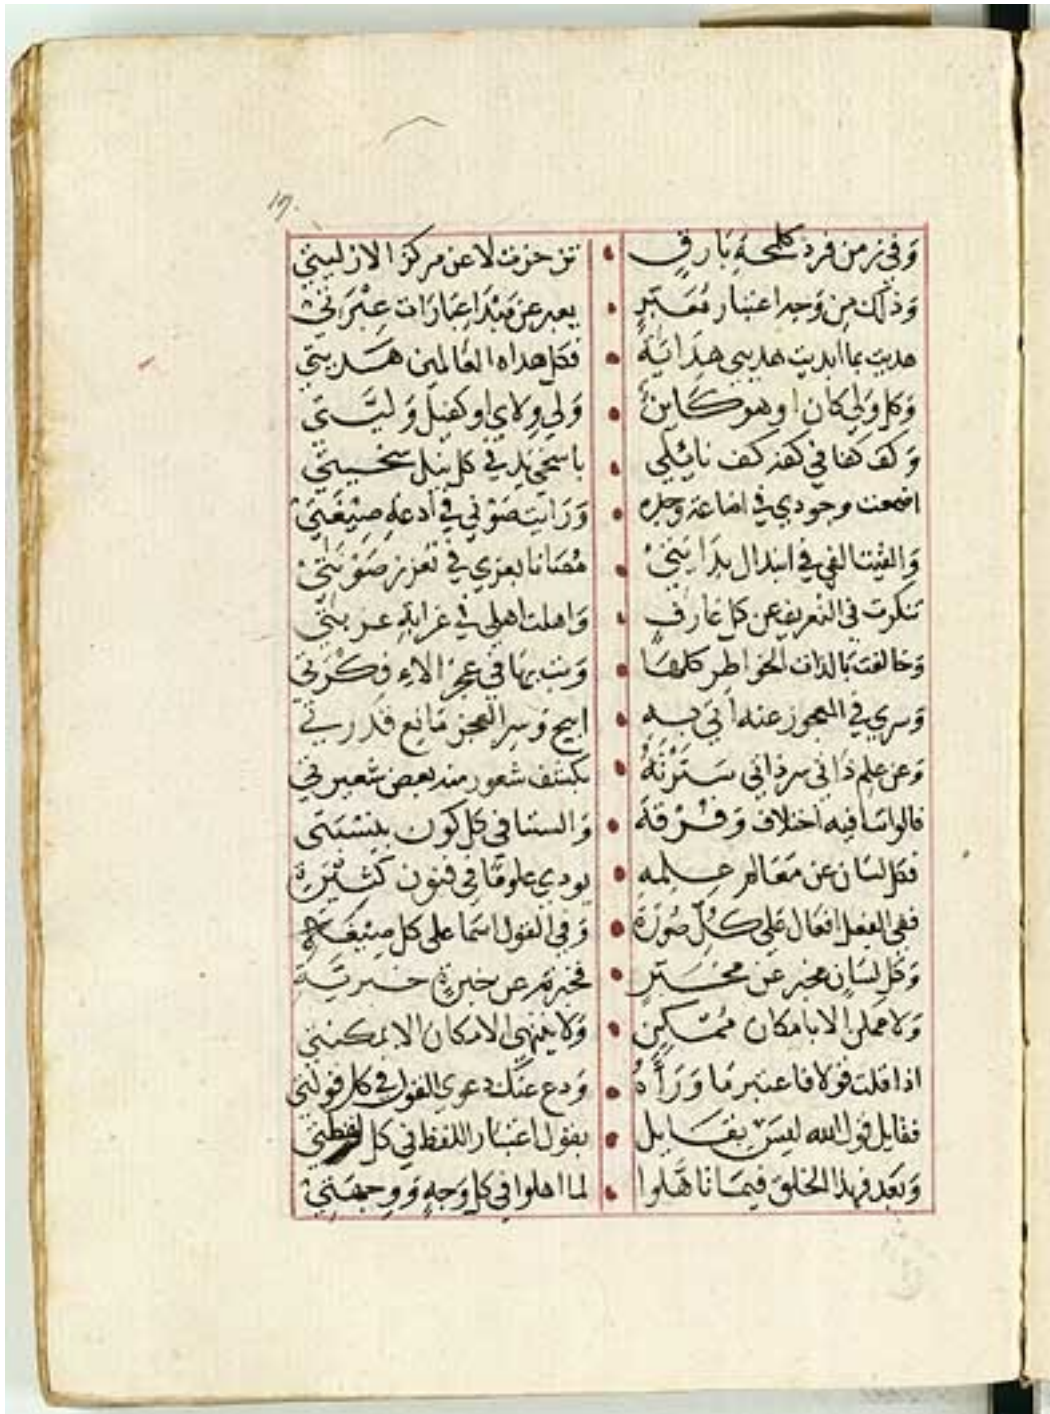 وَفي زمن فرد كلمحةِ بَارقٍ تزحزحت لا عن مركز الازليتي
وَذلك مِن وَجه اعتبار مُعتَبرٍ يعبر عن مَبْدَا عِبَارَات عِبْرَتي
هديت بما ابديت هديي هدَايَةً فكل هداه العَالمين هَديتي
وَكل وَلي كان او هو كَاينٌ وَلي وِلاي او كفيل وَليَّتي
وَكف كفا في كفه كف نايلي باسخى يد في كل نيل سخيتي
اضعت وجودي في اضاعة وجده وَرَايت صَوْني في اذاعةِ صِيْغَتِي
وَالفيت الفي في ابتدال بدايتي مُصَانا بعزي في تعزز صَوْنتي
تنكرت في التعريف عن كل عَارف وَاهلت اهلي في غرابةِ غربتي
وَخالفت بَالذات الخواطر كلهَا وَبت بهَا في عجز الاءِ فِكْرَتي
وَسري في المعجوز عنه اتي به ابيح وَسِر العجز مَانع قدرتي
وَعن علم ذاتي سر ذاتي سَتَرْتُهُ بكشف شعور منه بعض شعيرتي
فالواننا فيه اختلاف وَفرْقة وَالسننا في كل كون بنِسْبَتى
فكل لسَان عن مَعَالم علمه يودي علومًا في فنون كثيْرَة
ففي الفعل افعال عَلي كُلّ صُورَة وَفي القول اسمَا على كل صِيْغَة
وَكل لِسَانٍ مخبر عن مخبَرٍ فخبرته عن خبرةٍ خبريَّة
وَلا ممكن الا بامكان مُمْكنٍ وَلا ينتهى الامكان الا بمكنتي
اذا قلت قولا فاعتبر مَا وَرَآءَهُ وَدع عنْك دعوي القول في كل قولتي
فقايل قول الله ليسَ بقَايل بقول اعتبَار اللفظ في كل لفظتي
وَبَعد فهذا الخلق فيمَا تاهَّلوا لما اهلوا في كل وَجهٍ وَوِجهَتِي